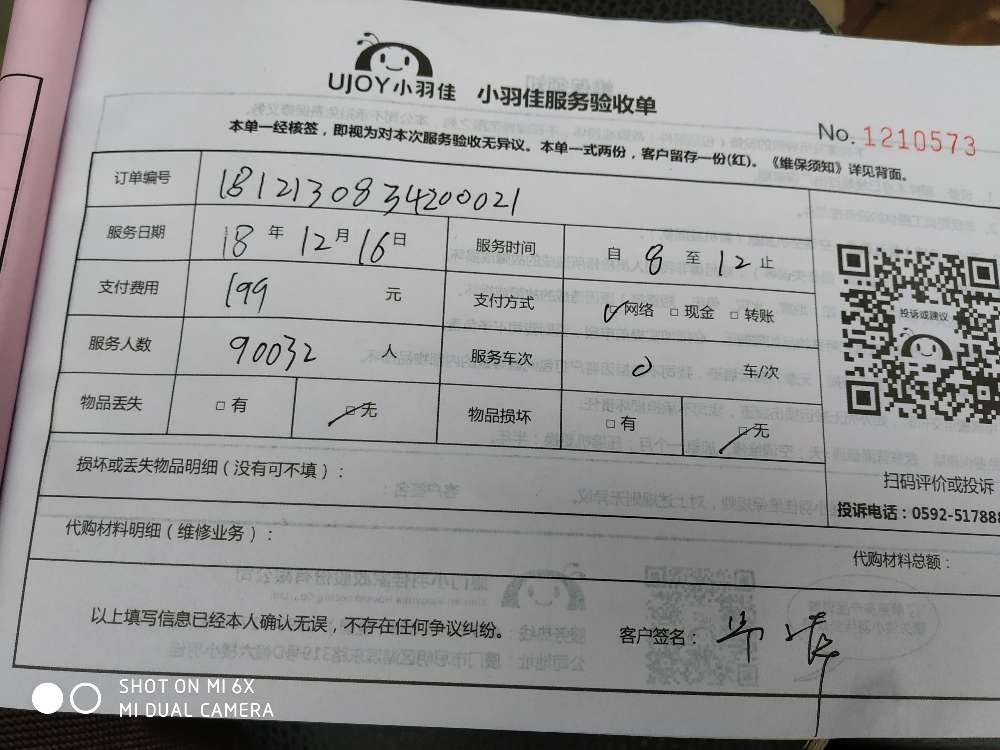 UJOY小羽佳 小羽佳服务验收单
No. 1210573
本单一经核签，即视为对本次服务验收无异议。本单一式两份，客户留存一份(红)。《维保须知》详见背面。
订单编号 1812130834200021
服务日期 18 年 12 月 16 日 服务时间 自 8 至 12 止
支付费用 199 元 支付方式 ☑网络 □现金 □转账
投诉或建议
服务人数 90032 人 服务车次 0 车/次
物品丢失 □有 ☑无 物品损坏 □有 ☑无
损坏或丢失物品明细（没有可不填）：
扫码评价或投诉
投诉电话：0592-517888
代购材料明细（维修业务）：
代购材料总额：
以上填写信息已经本人确认无误，不存在任何争议纠纷。 客户签名：
SHOT ON MI 6X
MI DUAL CAMERA